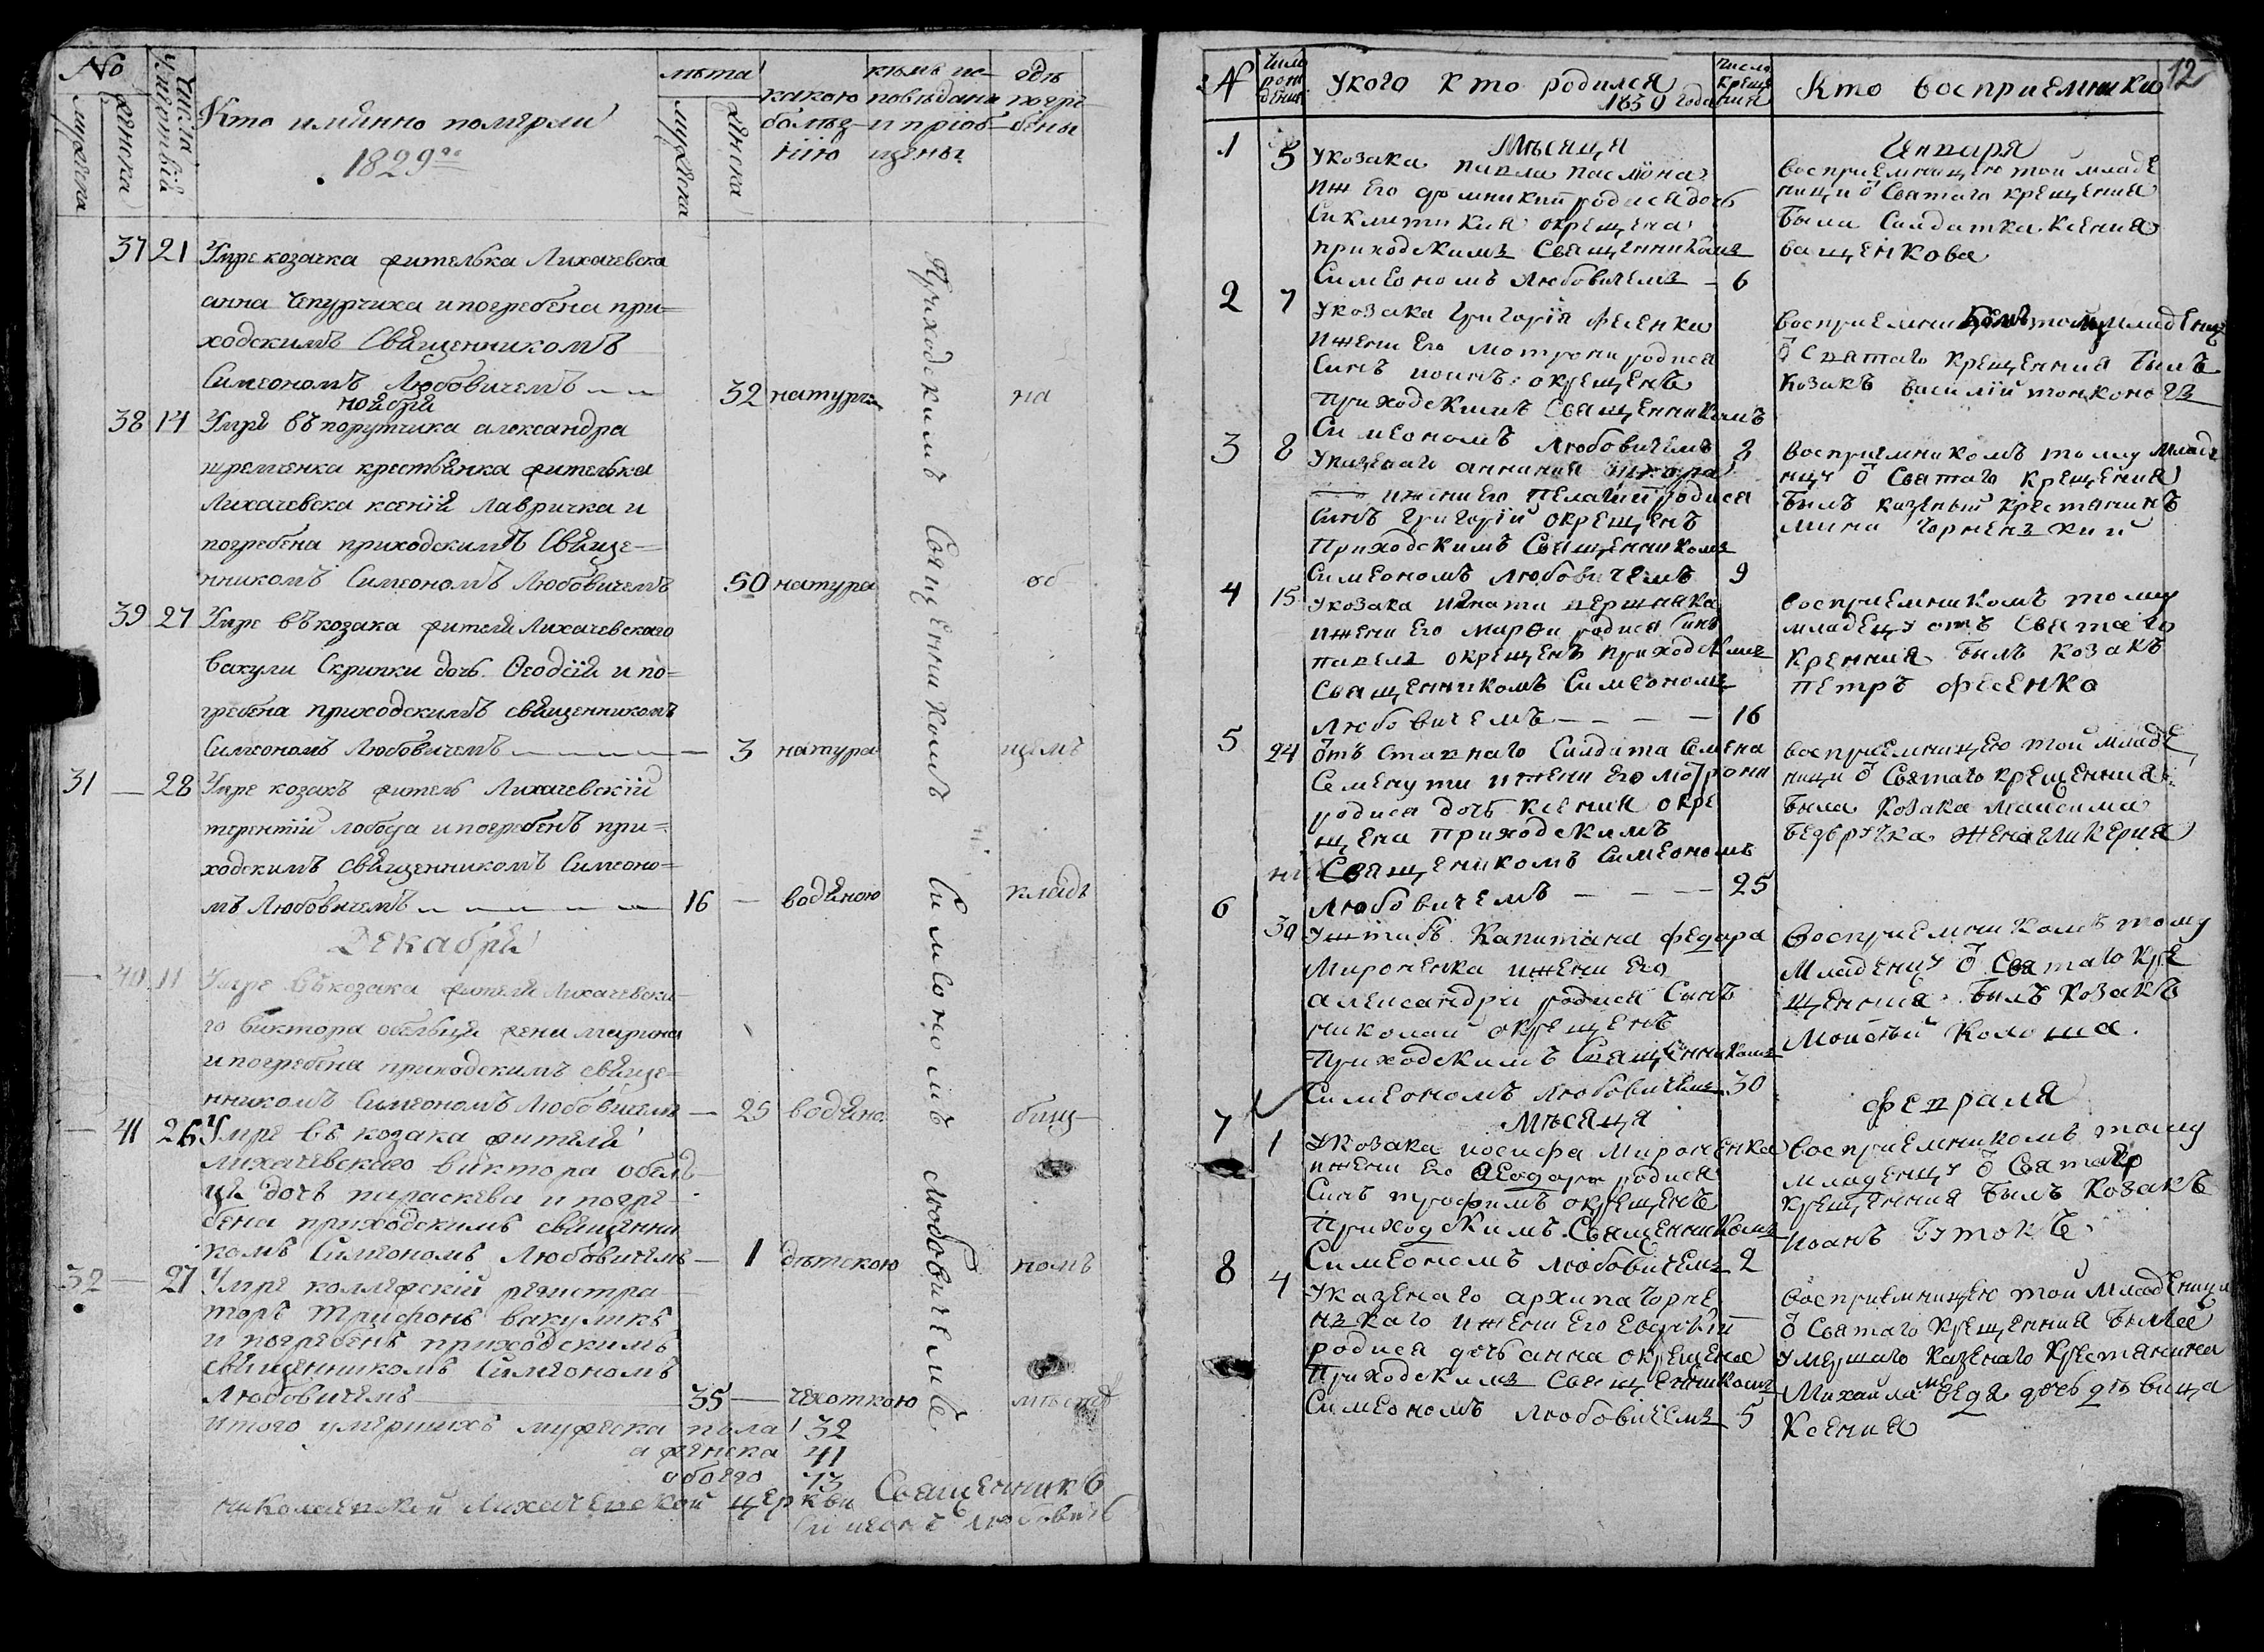 No
мужеска
женска
Числа умертвій
Кто имянно померли
1829го
лѣта
мужеска
женска
какою болѣз-
нію
кѣмъ ис-
повѣдани
и пріоб-
щены
гдѣ
погре-
бены
37 21 Умре козачка жителька Лихачевска
анна Чепурчиха и погребена при=
ходскимъ Священникомъ
Симеономъ Любовичемъ 32 натур на
ноября
38 14 Умре въ порутчика александра
крестьянка жителька
Лихачевска ксенія Лавричка и
погребена приходскимъ Свяще=
нникомъ Симеономъ Любовичемъ 50 натура об
39 27 Умре въ козака жителя Лихачевского
вакули Скрипки дочь Ѳеодсія и по=
гребена приходскимъ священникомъ
Симеономъ Любовичемъ — 3 натура щимъ
31 — 28 Умре козакъ житель Лихачевскій
терентій лобода и погребенъ при=
ходскимъ священникомъ Симеоно=
мъ Любовичемъ 16 — водяною кладъ
Декабря
— 40 11 Умре въ козака жителя Лихачевска
го виктора жени марина
и погребена приходскимъ свяще=
нникомъ Симеономъ Любовичемъ — 25 водяно бищ
— 41 26 Умре въ козака жителя
лихачевскаго виктора обел
ця дочь параскева и погре
бена приходскимъ священни
комъ Симеономъ Любовичемъ — 1 дѣтскою номъ
32 — 27 Умре коллежскій регистра
торъ Трифонъ вакуликъ
и погребенъ приходскимъ
священникомъ Симеономъ
Любовичемъ 35 — чехоткою мѣстѣ
Приходскимъ Священникомъ Симеономъ Любовичемъ
итого умершихъ мужеска пола 32
а женска 41
обоего 73
николаевской Лихачевской церкви Священникъ
Симеонъ Любовичъ
12
N
Числ рож денія
У кого кто родился
1830 года
Числа Креще нія
Кто восприемники
Мѣсяца Генваря
1 5 У козака павла
и жени Его родися дочь
Сиклитикия окрещена
приходскимъ Священникомъ
Симеономъ Любовичемъ — 6
восприемницею той младе
ници ѿ Святаго крещения
была Салдатка Ксения
ващенкова
2 7 У козака Григорія Фесенка
и жени Его мотрони родися
Синъ иоинъ окрещенъ
приходскимъ Священникомъ
Симеономъ Любовичемъ 8
тому младенцу
ѿ Святаго крещенния былъ
козакъ василій тонконогъ
3 8 У казенаго
и жени Его пелагии родися
Синъ григорій окрещенъ
приходскимъ Священникомъ
Симеономъ Любовичемъ 9
восприемникомъ тому младе
нцу ѿ Святаго Крещения
былъ казеный крестянинъ
мина Чорнензкий
4 15 У козака
и жени Его марѳи родися Синъ
павелъ окрещенъ приходскимъ
Священникомъ Симеономъ
Любовичемъ — — — 16
восприемникомъ тому
младенцу отъ Святаго
Крения былъ козакъ
петръ фесенко
5 24 Отъ Ставнаго Салдата Семена
Семенути и жени Его мотрони
родися дочь ксения окре
щена приходскимъ
ни Священикомъ Симеономъ
Любовичемъ — — — 25
восприемницею той младе
ници ѿ Святаго крещенния
была козака максима
жена гликерия
6 30 У штабъ Капитана Федора
Мироненка и жени Его
александри родися Синъ
николай окрещенъ
приходскимъ Священникомъ
Симеономъ Любовичемъ 30
восприемникомъ тому
младенцу ѿ Святаго Кре
щенния былъ козакъ
Мойсей Колоша.
Мѣсяца Февраля
7 1 У козака иосифа Мироненка
и жени Его Ѳеодори родися
Синъ трофимъ окрещенъ
приходскимъ Священникомъ
Симеономъ Любовичемъ 2
восприемникомъ тому
младенцу ѿ Святаго
Крещенния былъ козакъ
иоанъ
8 4 У казенаго архипа Чорне
нзкаго и жени Его
родися дочь анна окрещена
приходскимъ Священникомъ
Симеономъ Любовичемъ 5
восприемницею той младеници
ѿ Святаго Крещенния была
умершаго казенаго Крестянина
Михайла дочь девица
Ксения